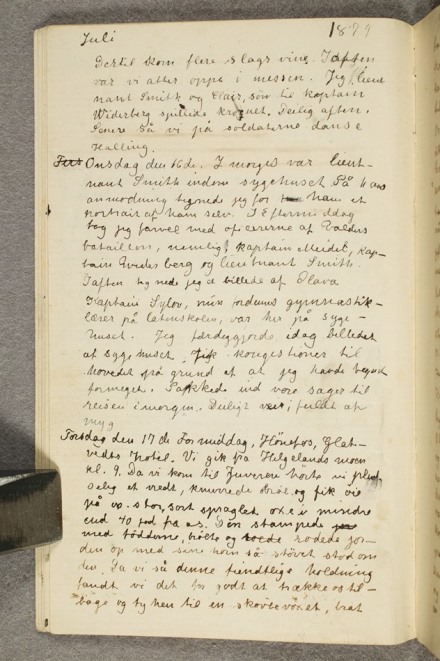 Juli 1879
Dertil kom flere slags vine. I aften
var vi atter oppe i messen. Jeg, lieut-
nant Smith og Clair, sön til kaptain
Widerberg spillede kroquet. Deilig aften.
Senere så vi på soldaterne danse
Halling.
Onsdag den 16de. I morges var lieut-
nant Smith indom sygehuset. På hans
anmodning tegnede jeg for ham et
portrait af ham selv. I Eftermiddag
tog jeg farvel med officererne af Valders
bataillon, nemlig kaptain Meidel, kap-
tain Widerberg og lieutnant Smith.
I aften tegnede jeg et billede af Clara
Kaptain Sylov, min fordums gymnastik-
lærer på latinskolen, var her på syge-
huset. Jeg færdiggjorde idag billedet
af sygehuset. Fik kongestioner til
hovedet på grund af at jeg havde
formeget. Pakkede ind vore sager til
reisen imorgen. Deiligt veir, fuldt af
myg
Torsdag den 17de Formiddag, Hönefos, Glat-
vedts hotel. Vi gik fra Helgelands moen
kl. 9. Da vi kom til hörte vi plud-
selig et vredt, knurrende bröl og fik öie
på en stor, sort spraglet oxe i mindre
end 40 fod fra os. Den stampede
med födderne, brölte og rodede jor-
den op med sine horn så stövet stod om
den. Da vi så denne fiendtlige holdning
fandt vi det for godt at trække os til-
bage og ty hen til en skovbevoxet, brat